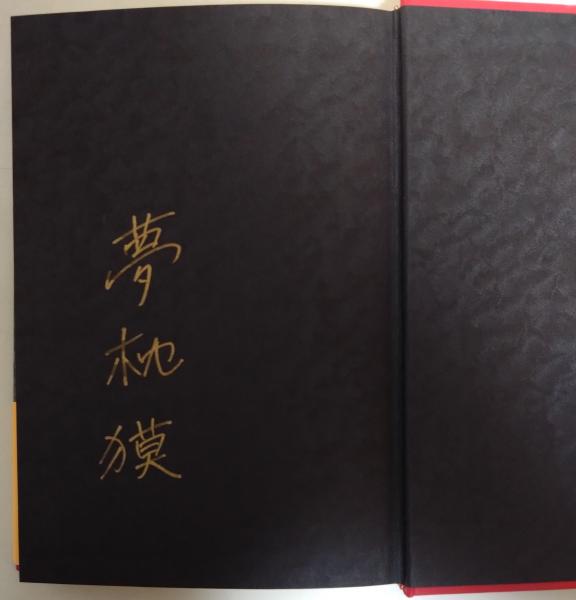 夢枕獏